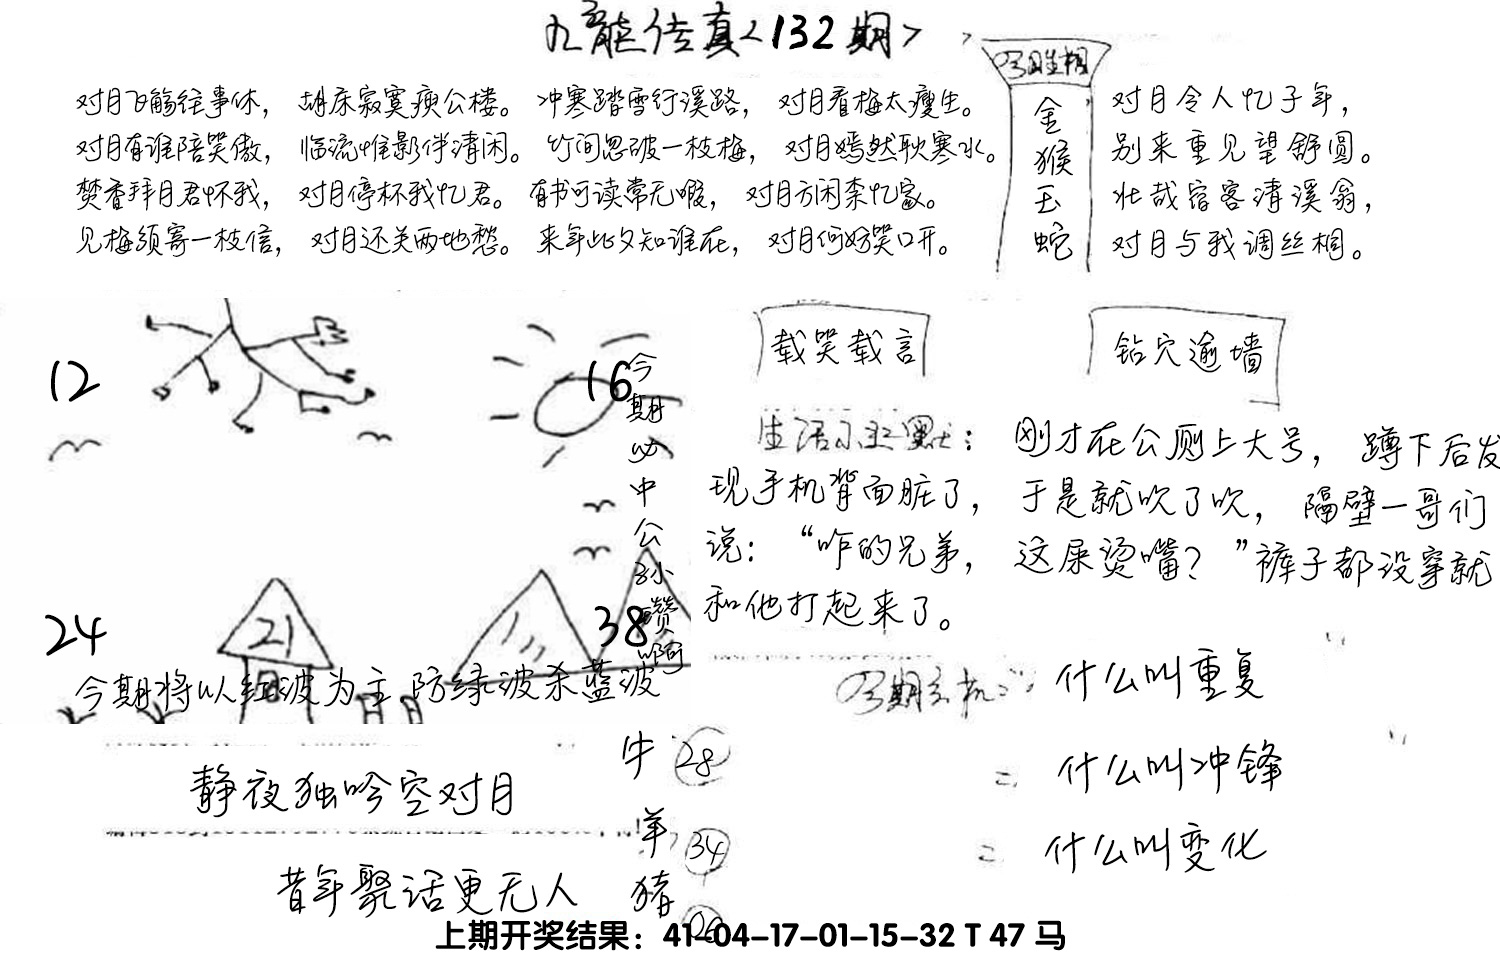 九龙传真<132期>
今期生相
金
猴
玉
蛇
对月飞觞往事休，胡床寂寞痕公楼。冲寒踏雪行溪路，对月看梅太瘦生。
对月有谁陪笑傲，临流惟影伴清闲。竹间忽破一枝梅，对月嫣然耿寒水。
焚香拜月君怀我，对月停杯我忆君。有书可读常无暇，对月方闲柰忆家。
见梅须寄一枝信，对月还关两地愁。来年此夕知谁在，对月何妨笑口开。
对月令人忆子年，
别来重见望舒圆。
壮哉宿客清溪翁，
对月与我调丝桐。
12
16
24
21
38
今期必中公孙瓒啊
今期将以红波为主防绿波杀蓝波
载笑载言
钻穴逾墙
生活小幽默：刚才在公厕上大号，蹲下后发
现手机背面脏了，于是就吹了吹，隔壁一哥们
说：“咋的兄弟，这屎烫嘴？”裤子都没穿就
和他打起来了。
今期玄机：什么叫重复
= 什么叫冲锋
= 什么叫变化
静夜独吟空对月
昔年聚话更无人
牛 28
羊 34
猪
上期开奖结果：41-04-17-01-15-32 T 47 马